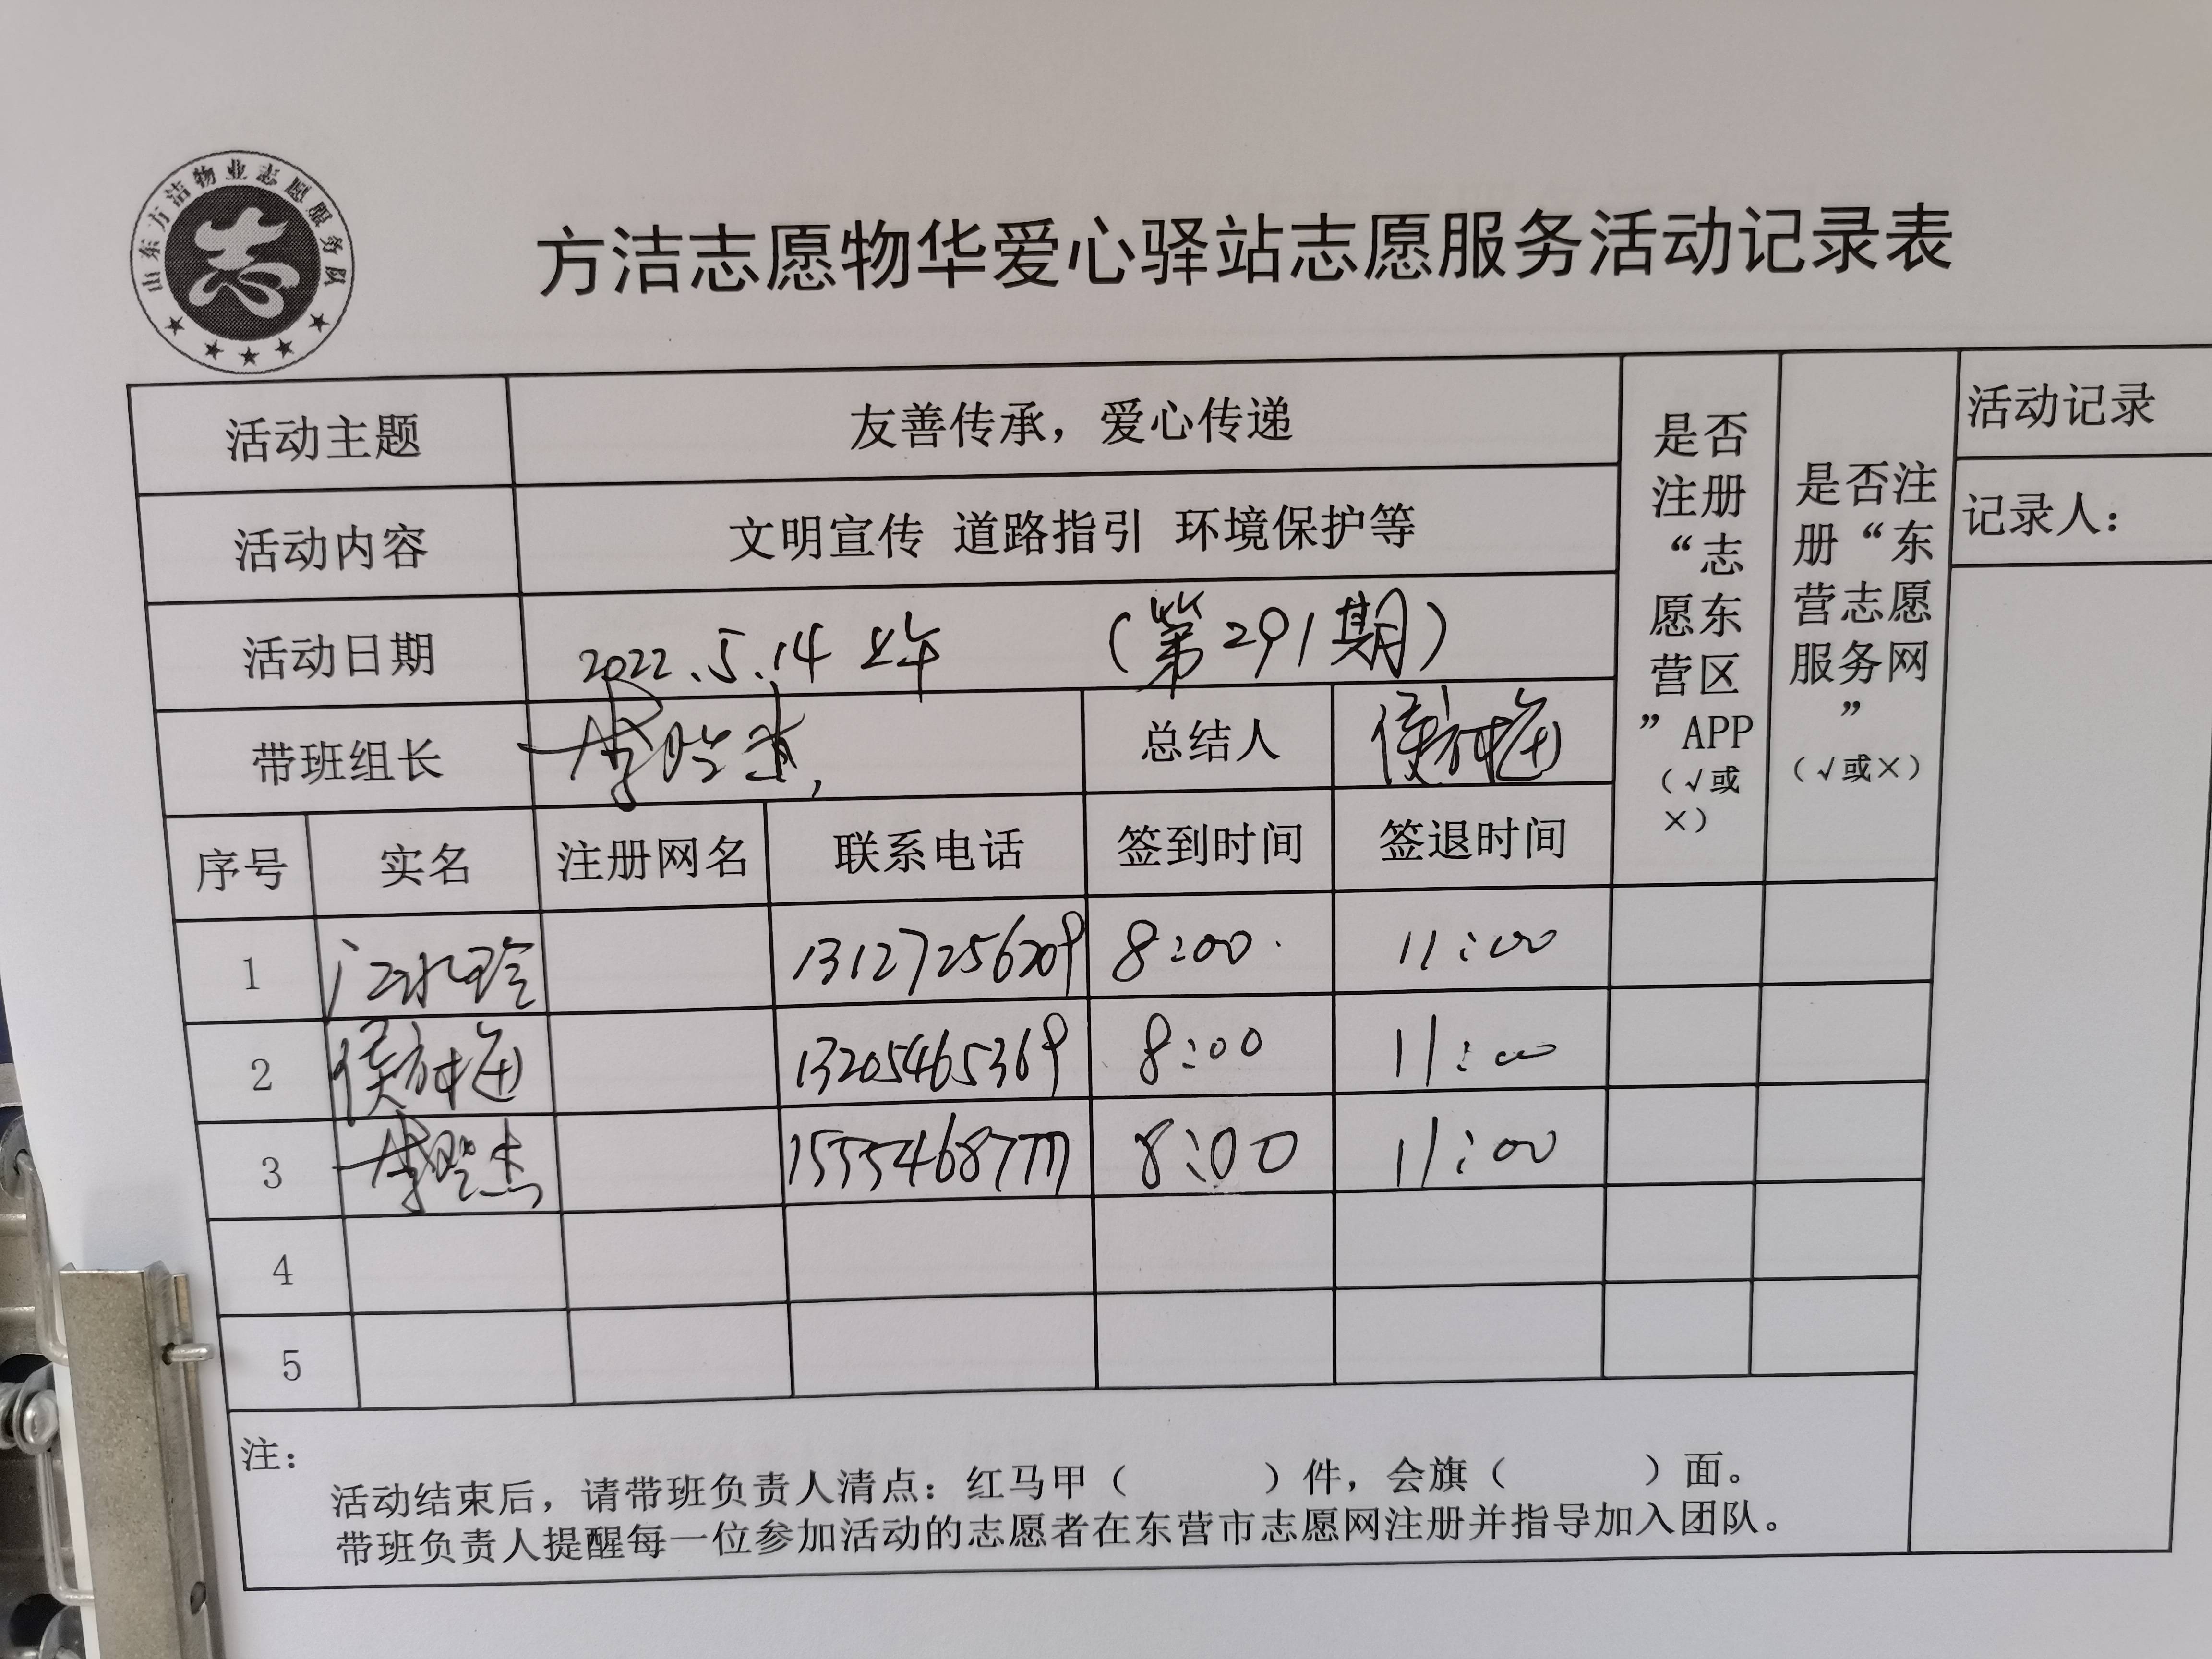 山东方洁物业志愿服务队
方洁志愿物华爱心驿站志愿服务活动记录表
活动主题 友善传承，爱心传递
活动内容 文明宣传 道路指引 环境保护等
活动日期 2022.5.14 上午 （第291期）
带班组长 李 总结人 侯
是否注册“志愿东营区”APP（√或×）
是否注册“东营志愿服务网”（√或×）
活动记录
记录人：
序号 实名 注册网名 联系电话 签到时间 签退时间
1 13127256209 8:00 11:00
2 侯 13205465369 8:00 11:00
3 李 15554687777 8:00 11:00
4
5
注：
活动结束后，请带班负责人清点：红马甲（ ）件，会旗（ ）面。
带班负责人提醒每一位参加活动的志愿者在东营市志愿网注册并指导加入团队。